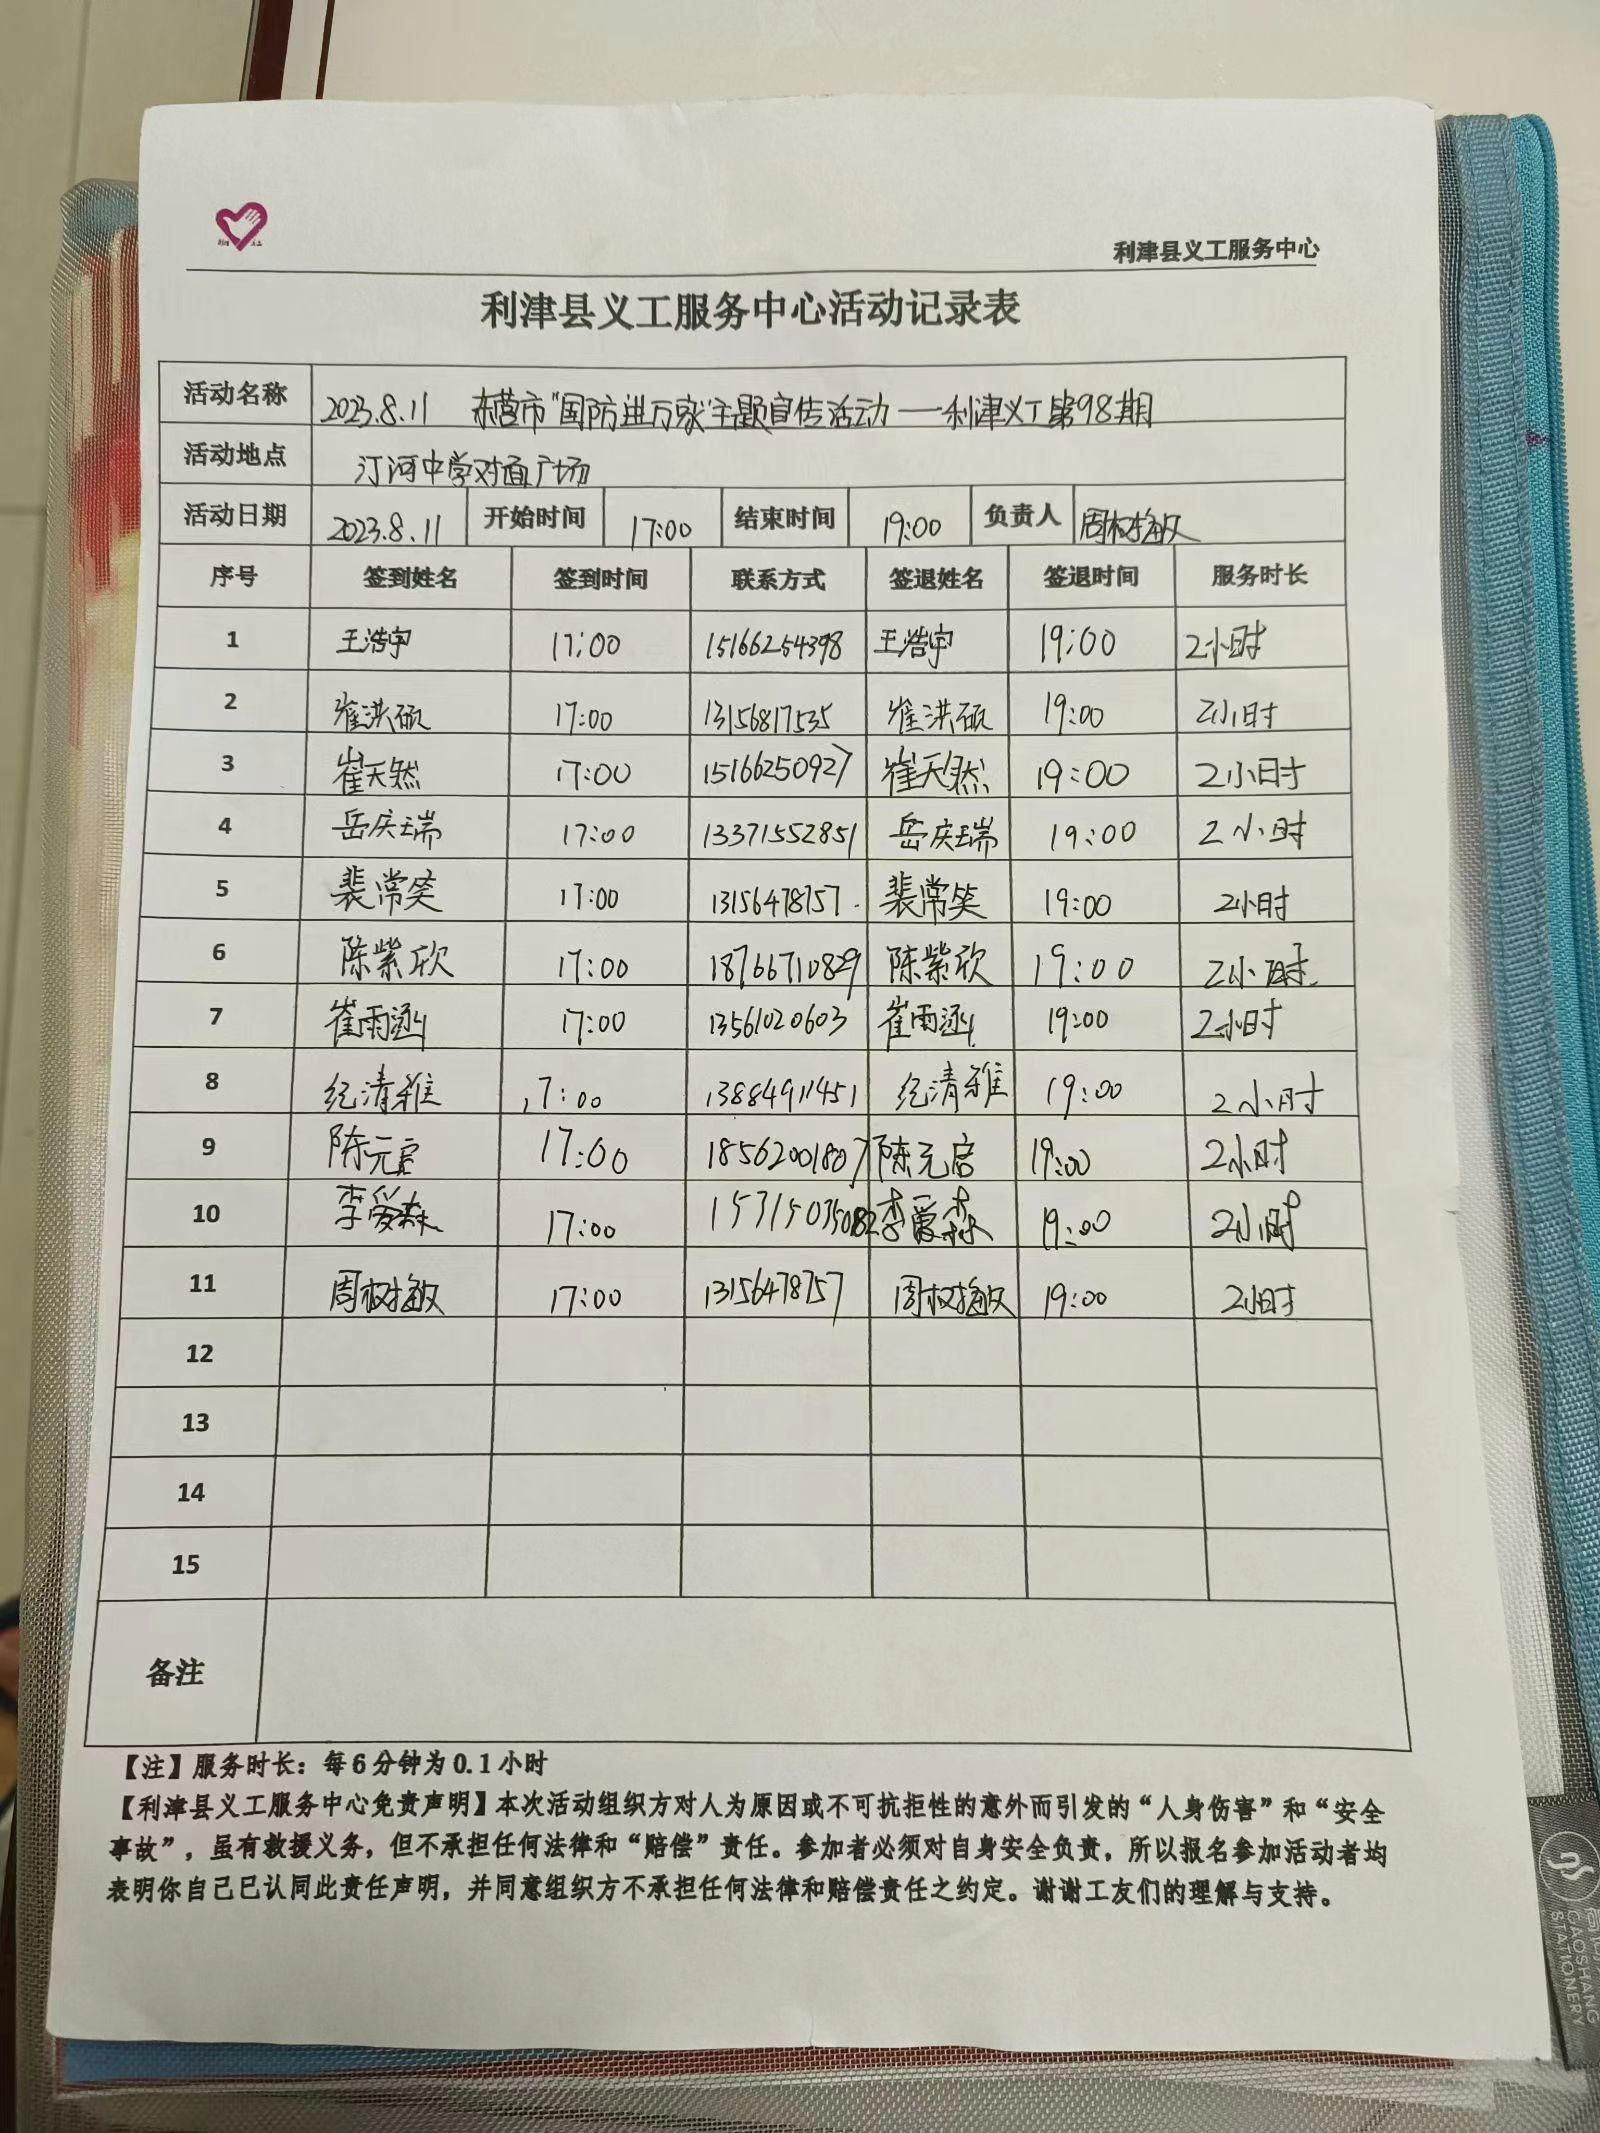 利津县义工服务中心
利津县义工服务中心活动记录表
活动名称 2023.8.11 东营市"国防进万家"主题宣传活动——利津义工第98期
活动地点 汀河中学对面广场
活动日期 2023.8.11 开始时间 17:00 结束时间 19:00 负责人 周树梅
序号 签到姓名 签到时间 联系方式 签退姓名 签退时间 服务时长
1 王浩宇 17:00 15166254398 王浩宇 19:00 2小时
2 崔洪硕 17:00 13156817535 崔洪硕 19:00 2小时
3 崔天然 17:00 15166250927 崔天然 19:00 2小时
4 岳庆瑞 17:00 13371552851 岳庆瑞 19:00 2小时
5 裴常笑 17:00 13156478757 裴常笑 19:00 2小时
6 陈紫欣 17:00 18766710829 陈紫欣 19:00 2小时
7 崔雨涵 17:00 13561020603 崔雨涵 19:00 2小时
8 纪清雅 17:00 13884911451 纪清雅 19:00 2小时
9 陈元启 17:00 18562001807 陈元启 19:00 2小时
10 李爱森 17:00 李爱森 19:00 2小时
11 17:00 13156478757 19:00 2小时
12
13
14
15
备注
【注】服务时长：每6分钟为0.1小时
【利津县义工服务中心免责声明】本次活动组织方对人为原因或不可抗拒性的意外而引发的“人身伤害”和“安全
事故”，虽有救援义务，但不承担任何法律和“赔偿”责任。参加者必须对自身安全负责，所以报名参加活动者均
表明你自己已认同此责任声明，并同意组织方不承担任何法律和赔偿责任之约定。谢谢工友们的理解与支持。
GAOSHANG
STATIONERY